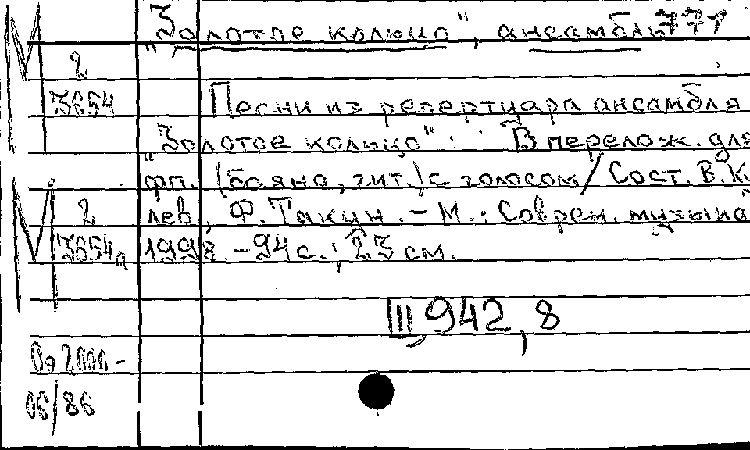 "Золотое кольцо", ансамбль 771
М
2
3654
Песни из репертуара ансамбля
"Золотое кольцо": В перелож. для
фп. (баяна, гит.) с голосом / Сост. В. К.
М
2
3654а
лев, Ф. Такун. - М.: Соврем. музыка
1998. - 94 с.; 23 см.
III, 942, 8
06/86